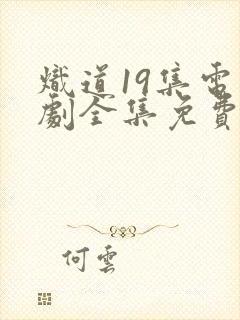 熾道19集電
劇全集免費
何雲